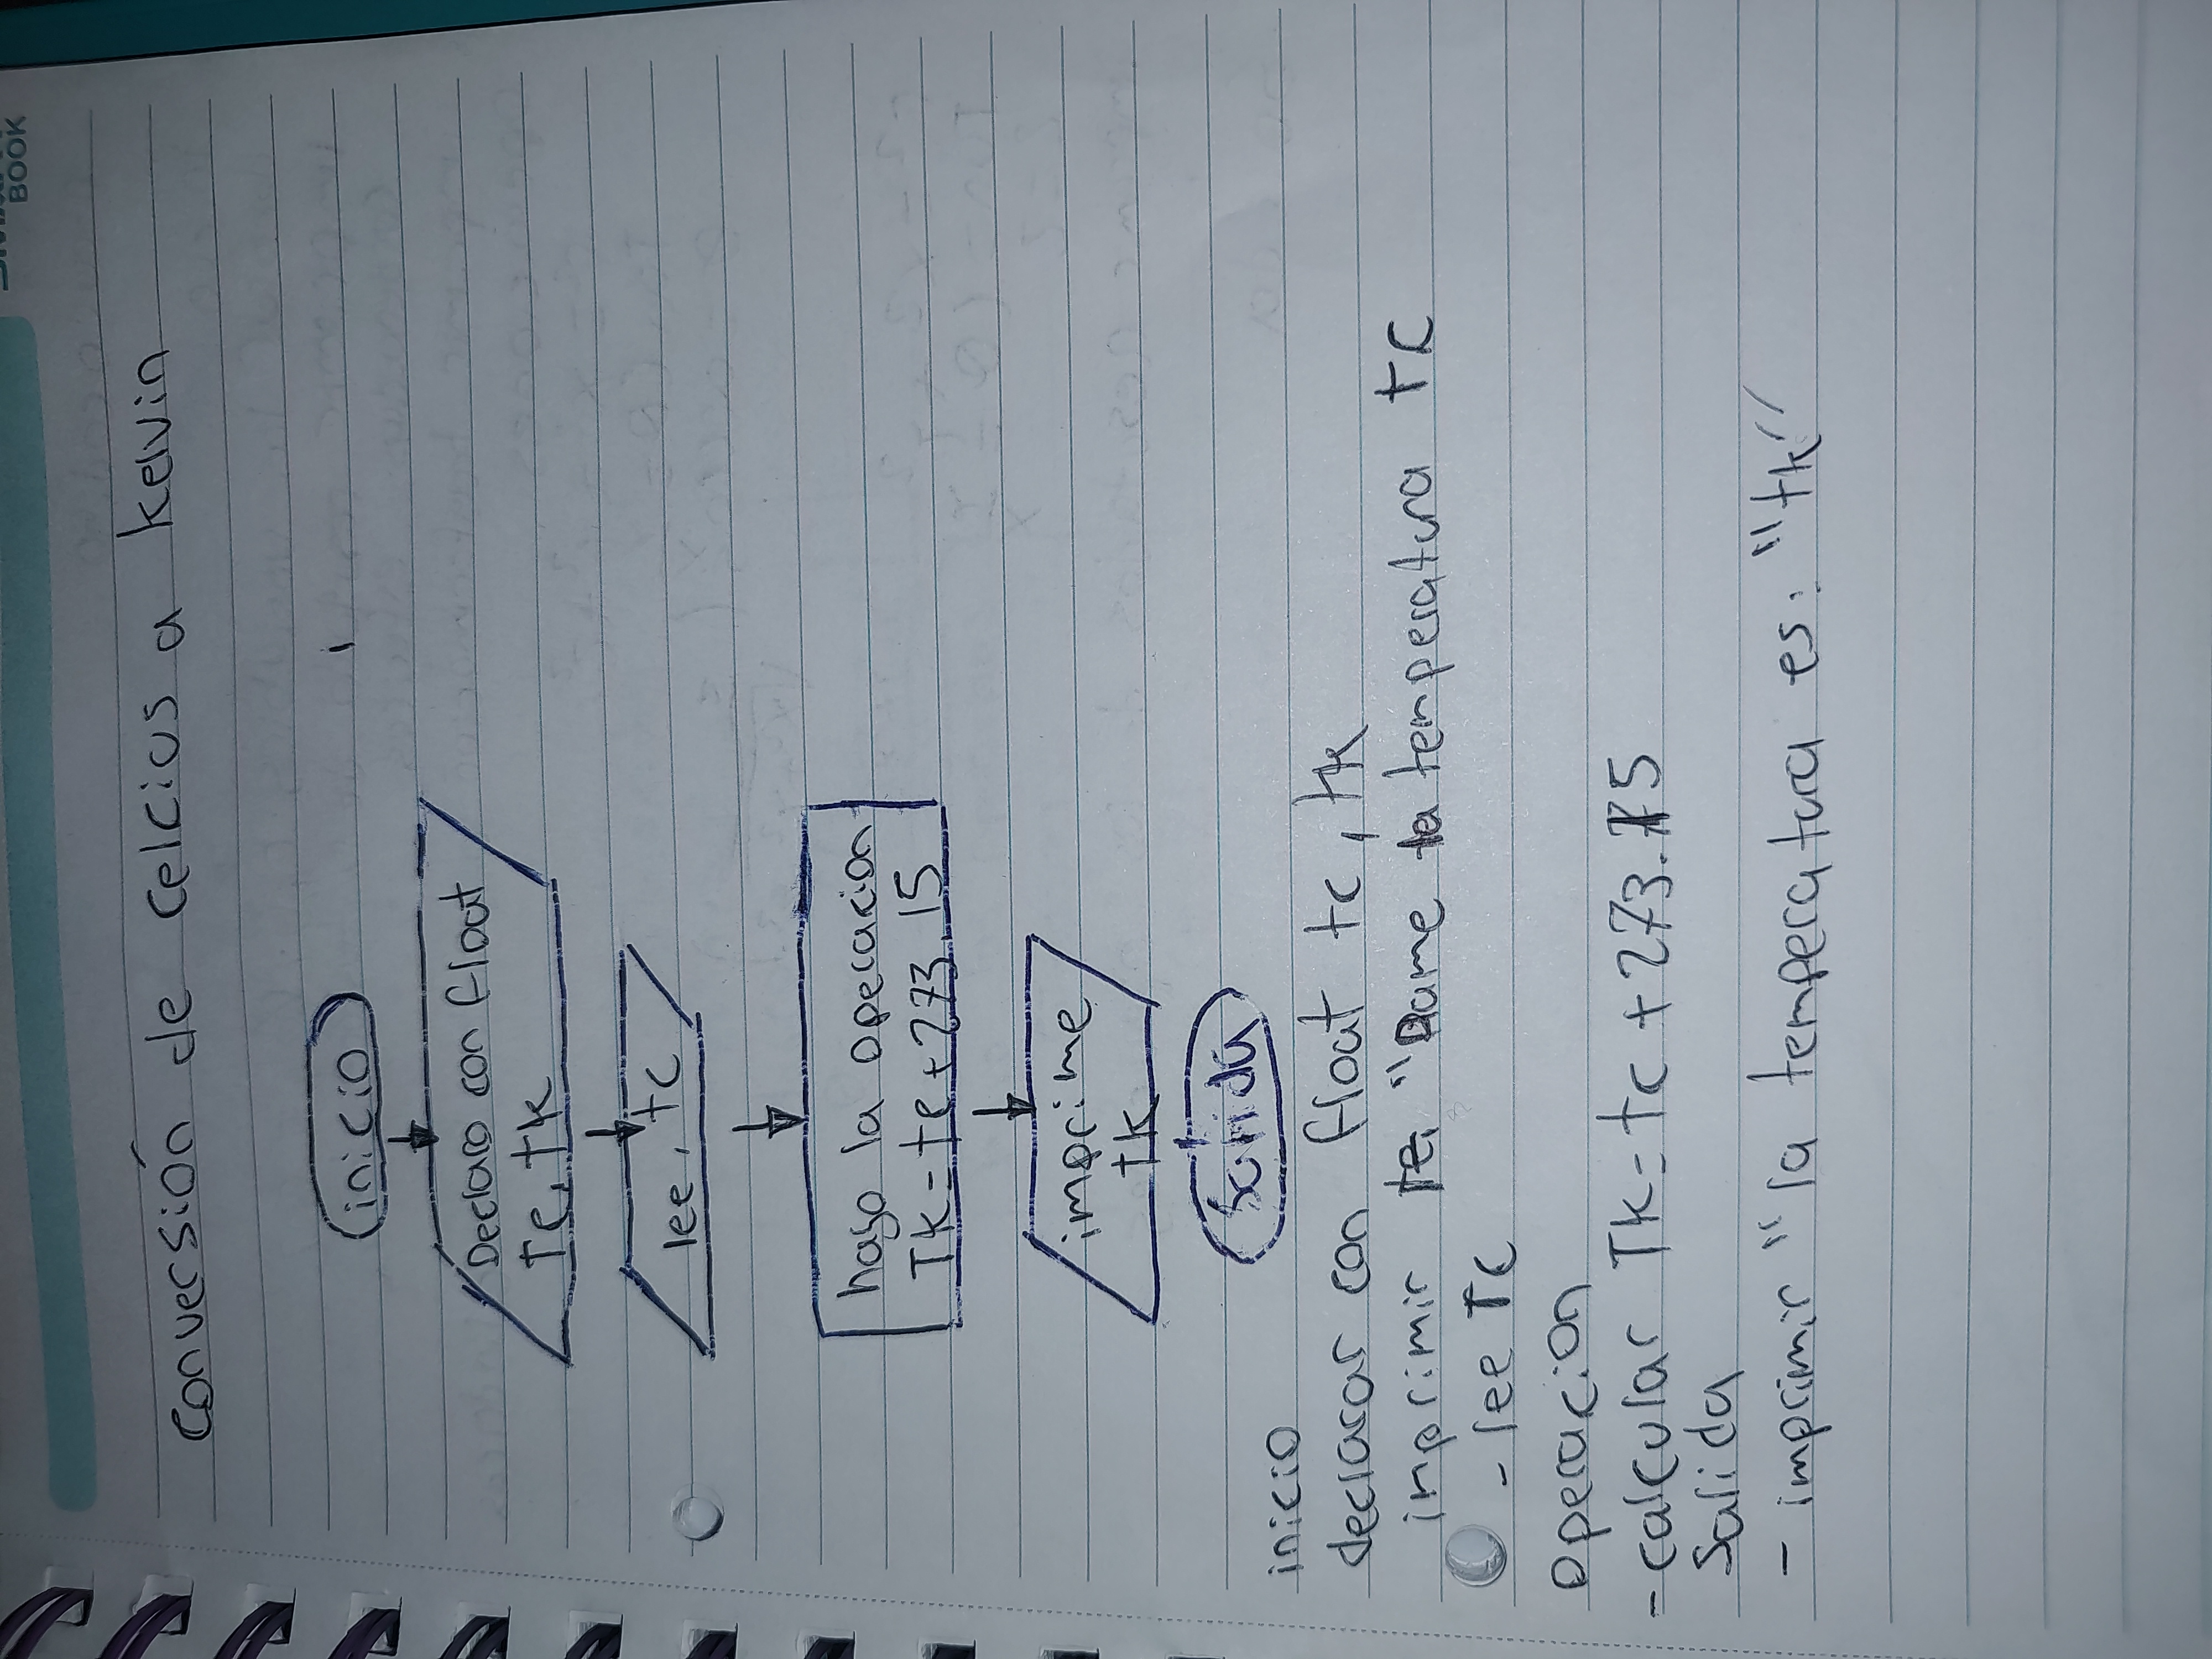 BOOK
conversión de celcius a kelvin
inicio
Declaro con float
Tc, tk
lee, tc
hago la operacion
Tk = tc + 273.15
imprime
tk
Salida
inicio
declarar con float tc, tk
imprimir "Dame la temperatura tc
- lee Tc
operacion
- calcular Tk = tc + 273.15
Salida
- imprimir "la temperatura es: "tk"